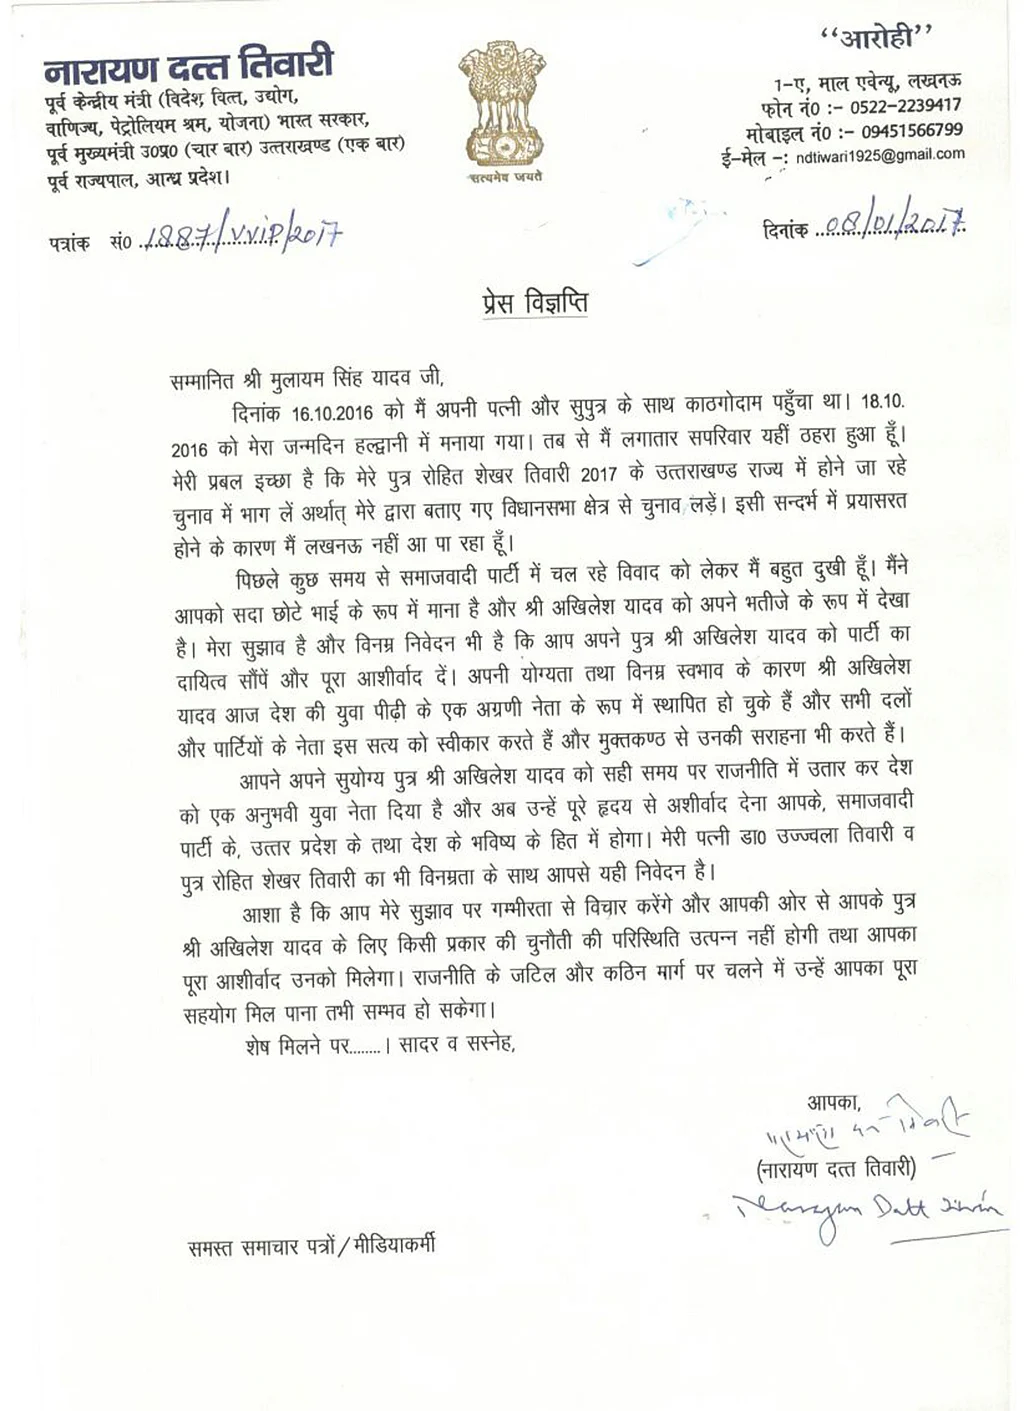 नारायण दत्त तिवारी
पूर्व केन्द्रीय मंत्री (विदेश, वित्त, उद्योग,
वाणिज्य, पेट्रोलियम श्रम, योजना) भारत सरकार,
पूर्व मुख्यमंत्री उ०प्र० (चार बार) उत्तराखण्ड (एक बार)
पूर्व राज्यपाल, आन्ध्र प्रदेश।
सत्यमेव जयते
‘‘आरोही’’
1-ए, माल एवेन्यू, लखनऊ
फोन नं0 :- 0522-2239417
मोबाइल नं0 :- 09451566799
ई-मेल -: ndtiwari1925@gmail.com
पत्रांक सं0 1887/VVIP/2017
दिनांक 08/01/2017
प्रेस विज्ञप्ति
सम्मानित श्री मुलायम सिंह यादव जी,
दिनांक 16.10.2016 को मैं अपनी पत्नी और सुपुत्र के साथ काठगोदाम पहुँचा था। 18.10.
2016 को मेरा जन्मदिन हल्द्वानी में मनाया गया। तब से मैं लगातार सपरिवार यहीं ठहरा हुआ हूँ।
मेरी प्रबल इच्छा है कि मेरे पुत्र रोहित शेखर तिवारी 2017 के उत्तराखण्ड राज्य में होने जा रहे
चुनाव में भाग लें अर्थात् मेरे द्वारा बताए गए विधानसभा क्षेत्र से चुनाव लड़ें। इसी सन्दर्भ में प्रयासरत
होने के कारण मैं लखनऊ नहीं आ पा रहा हूँ।
पिछले कुछ समय से समाजवादी पार्टी में चल रहे विवाद को लेकर मैं बहुत दुखी हूँ। मैंने
आपको सदा छोटे भाई के रूप में माना है और श्री अखिलेश यादव को अपने भतीजे के रूप में देखा
है। मेरा सुझाव है और विनम्र निवेदन भी है कि आप अपने पुत्र श्री अखिलेश यादव को पार्टी का
दायित्व सौंपें और पूरा आशीर्वाद दें। अपनी योग्यता तथा विनम्र स्वभाव के कारण श्री अखिलेश
यादव आज देश की युवा पीढ़ी के एक अग्रणी नेता के रूप में स्थापित हो चुके हैं और सभी दलों
और पार्टियों के नेता इस सत्य को स्वीकार करते हैं और मुक्तकण्ठ से उनकी सराहना भी करते हैं।
आपने अपने सुयोग्य पुत्र श्री अखिलेश यादव को सही समय पर राजनीति में उतार कर देश
को एक अनुभवी युवा नेता दिया है और अब उन्हें पूरे हृदय से अशीर्वाद देना आपके, समाजवादी
पार्टी के, उत्तर प्रदेश के तथा देश के भविष्य के हित में होगा। मेरी पत्नी डा0 उज्ज्वला तिवारी व
पुत्र रोहित शेखर तिवारी का भी विनम्रता के साथ आपसे यही निवेदन है।
आशा है कि आप मेरे सुझाव पर गम्भीरता से विचार करेंगे और आपकी ओर से आपके पुत्र
श्री अखिलेश यादव के लिए किसी प्रकार की चुनौती की परिस्थिति उत्पन्न नहीं होगी तथा आपका
पूरा आशीर्वाद उनको मिलेगा। राजनीति के जटिल और कठिन मार्ग पर चलने में उन्हें आपका पूरा
सहयोग मिल पाना तभी सम्भव हो सकेगा।
शेष मिलने पर........। सादर व सस्नेह,
आपका,
नारायण दत्त तिवारी
(नारायण दत्त तिवारी)
Narayan Datt Tiwari
समस्त समाचार पत्रों/मीडियाकर्मी